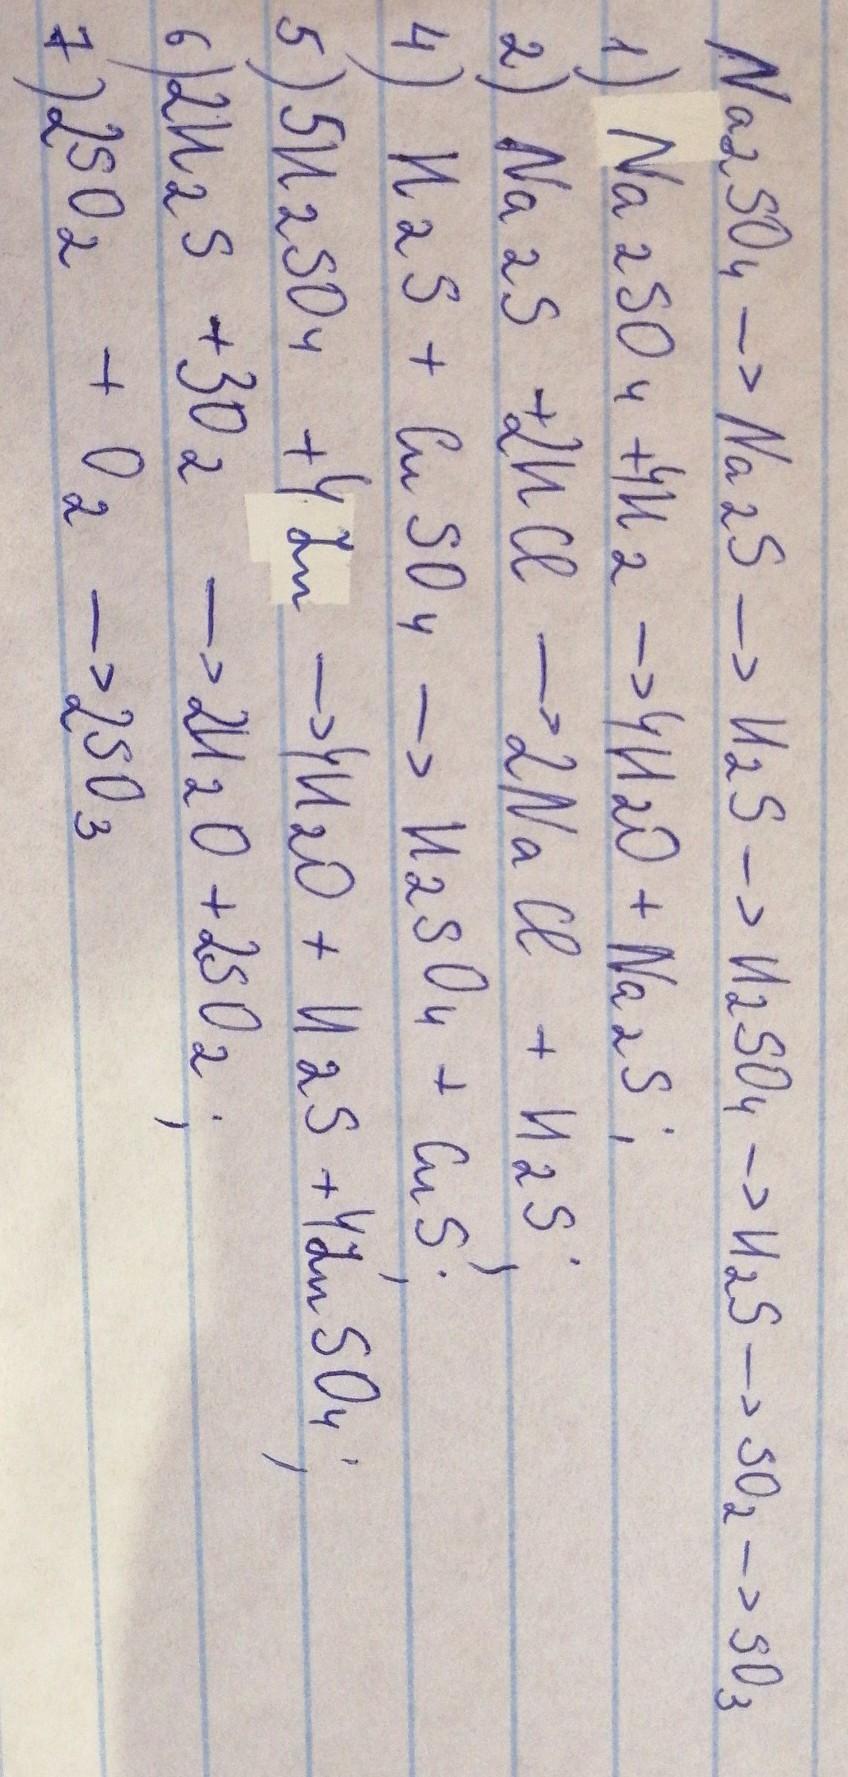 Na₂SO₄ → Na₂S → H₂S → H₂SO₄ → H₂S → SO₂ → SO₃
1) Na₂SO₄ + 4H₂ → 4H₂O + Na₂S;
2) Na₂S + 2HCl → 2NaCl + H₂S;
4) H₂S + CuSO₄ → H₂SO₄ + CuS;
5) 5H₂SO₄ + 4Zn → 4H₂O + H₂S + 4ZnSO₄;
6) 2H₂S + 3O₂ → 2H₂O + 2SO₂;
7) 2SO₂ + O₂ → 2SO₃